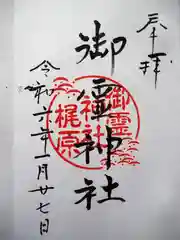 奉拝
御霊神社
御霊神社
梶原
令和六年一月廿七日